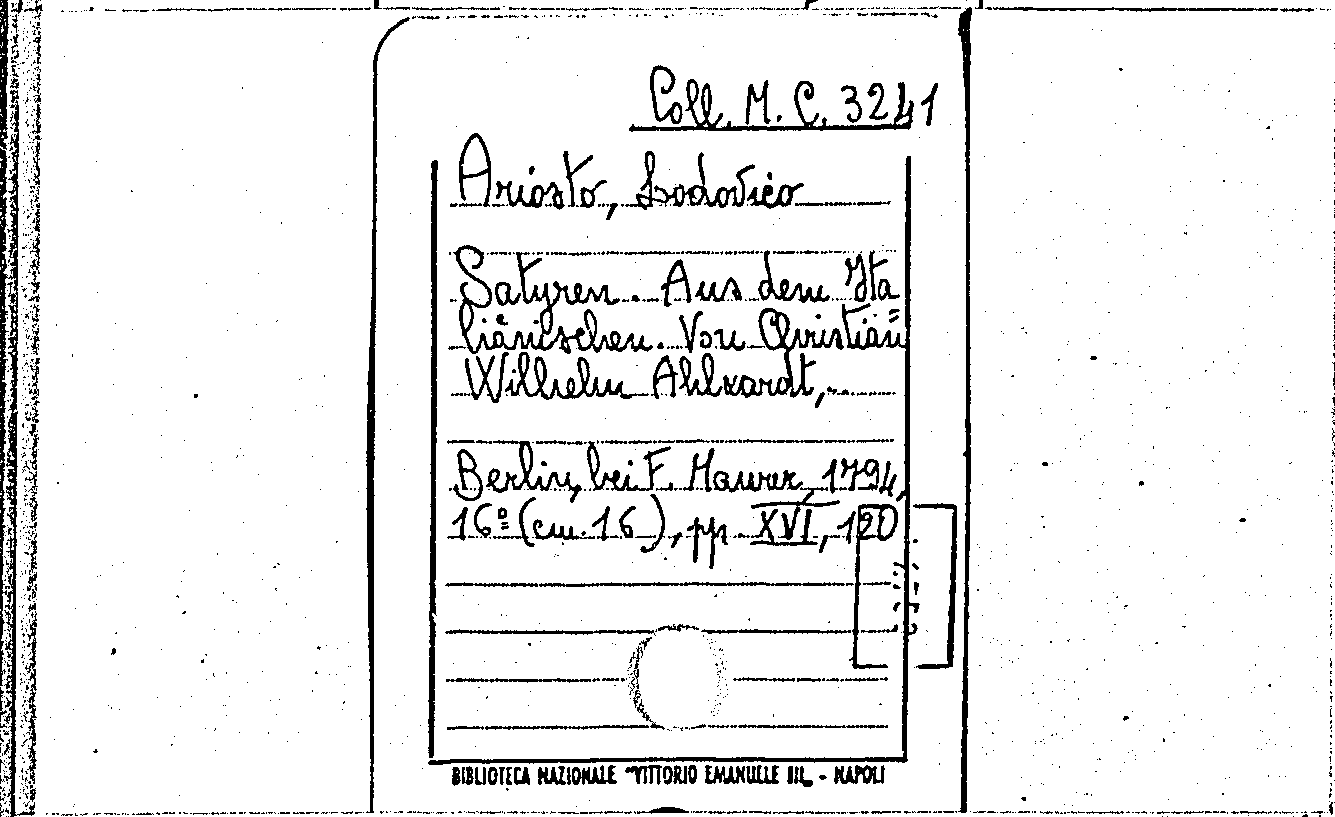 Coll. M. C. 3241
Ariosto, Lodovico
Satyren. Aus dem Ita=
liänischen. Von Christian
Wilhelm Ahlwardt,..
Berlin, bei F. Maurer, 1794,
16º (cm. 16), pp. XVI, 120
BIBLIOTECA NAZIONALE "VITTORIO EMANUELE III„ - NAPOLI